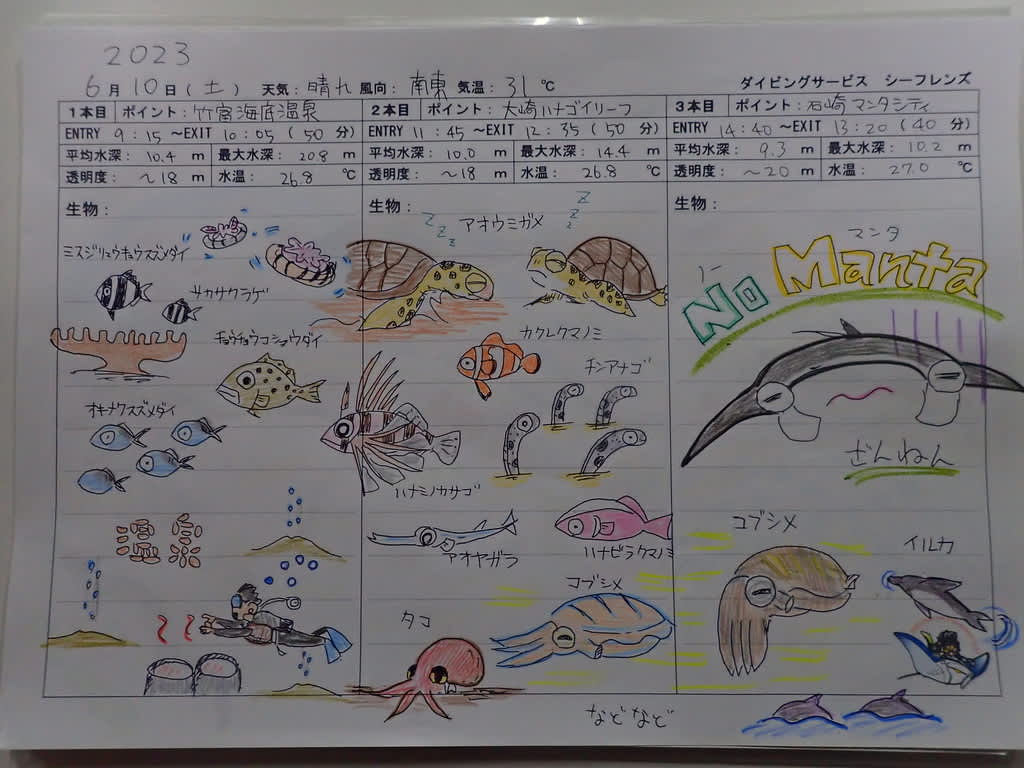 2023
6月10日(土) 天気:晴れ 風向:南東 気温:31℃ ダイビングサービス シーフレンズ
1本目 ポイント:竹富海底温泉
ENTRY 9:15 ~EXIT 10:05 (50 分)
平均水深: 10.4 m 最大水深: 20.8 m
透明度: ~18 m 水温: 26.8 ℃
生物:
ミスジリュウキュウスズメダイ
サカサクラゲ
チョウチョウコショウダイ
オキナワスズメダイ
温泉
2本目 ポイント:大崎ハナゴイリーフ
ENTRY 11:45 ~EXIT 12:35 (50 分)
平均水深: 10.0 m 最大水深: 14.4 m
透明度: ~18 m 水温: 26.8 ℃
生物:
アオウミガメ
z z z
z z z
カクレクマノミ
チンアナゴ
ハナミノカサゴ
アオヤガラ
ハナビラクマノミ
コブシメ
タコ
などなど
3本目 ポイント:石崎マンタシティ
ENTRY 14:40 ~EXIT 13:20 (40 分)
平均水深: 9.3 m 最大水深: 10.2 m
透明度: ~20 m 水温: 27.0 ℃
生物:
ノー マンタ
No Manta
ざんねん
コブシメ
イルカ